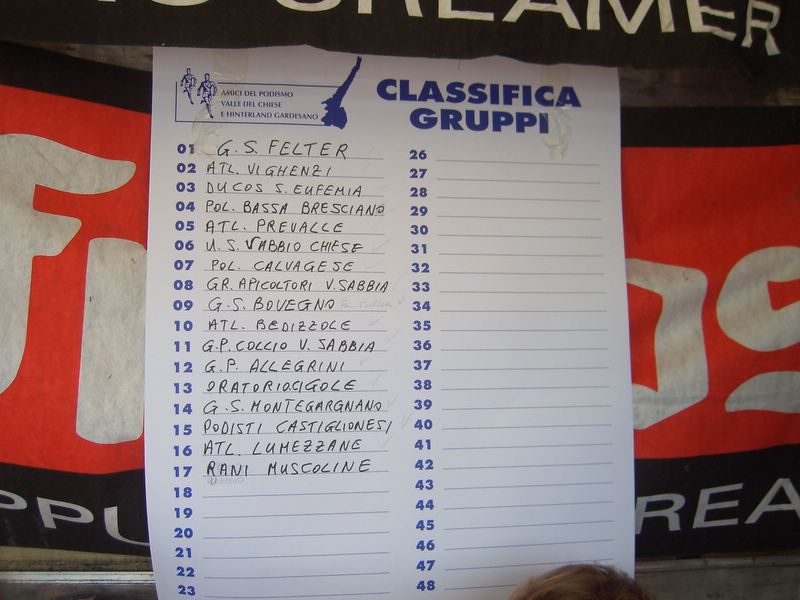 CREAMER
AMICI DEL PODISMO
VALLE DEL CHIESE
E HINTERLAND GARDESANO
CLASSIFICA
GRUPPI
01 G.S. FELTER
02 ATL. VIGHENZI
03 DUCOS S. EUFEMIA
04 POL. BASSA BRESCIANO
05 ATL. PREVALLE
06 U.S. VABBIO CHIESE
07 POL. CALVAGESE
08 GR. APICOLTORI V. SABBIA
09 G.S. BOVEGNO
10 ATL. BEDIZZOLE
11 G.P. COLLIO V. SABBIA
12 G.P. ALLEGRINI
13 ORATORIO CIGOLE
14 G.S. MONTEGARGNANO
15 PODISTI CASTIGLIONESI
16 ATL. LUMEZZANE
17 RANI MUSCOLINE
18
19
20
21
22
23
26
27
28
29
30
31
32
33
34
35
36
37
38
39
40
41
42
43
44
45
46
47
48
PPU
REA